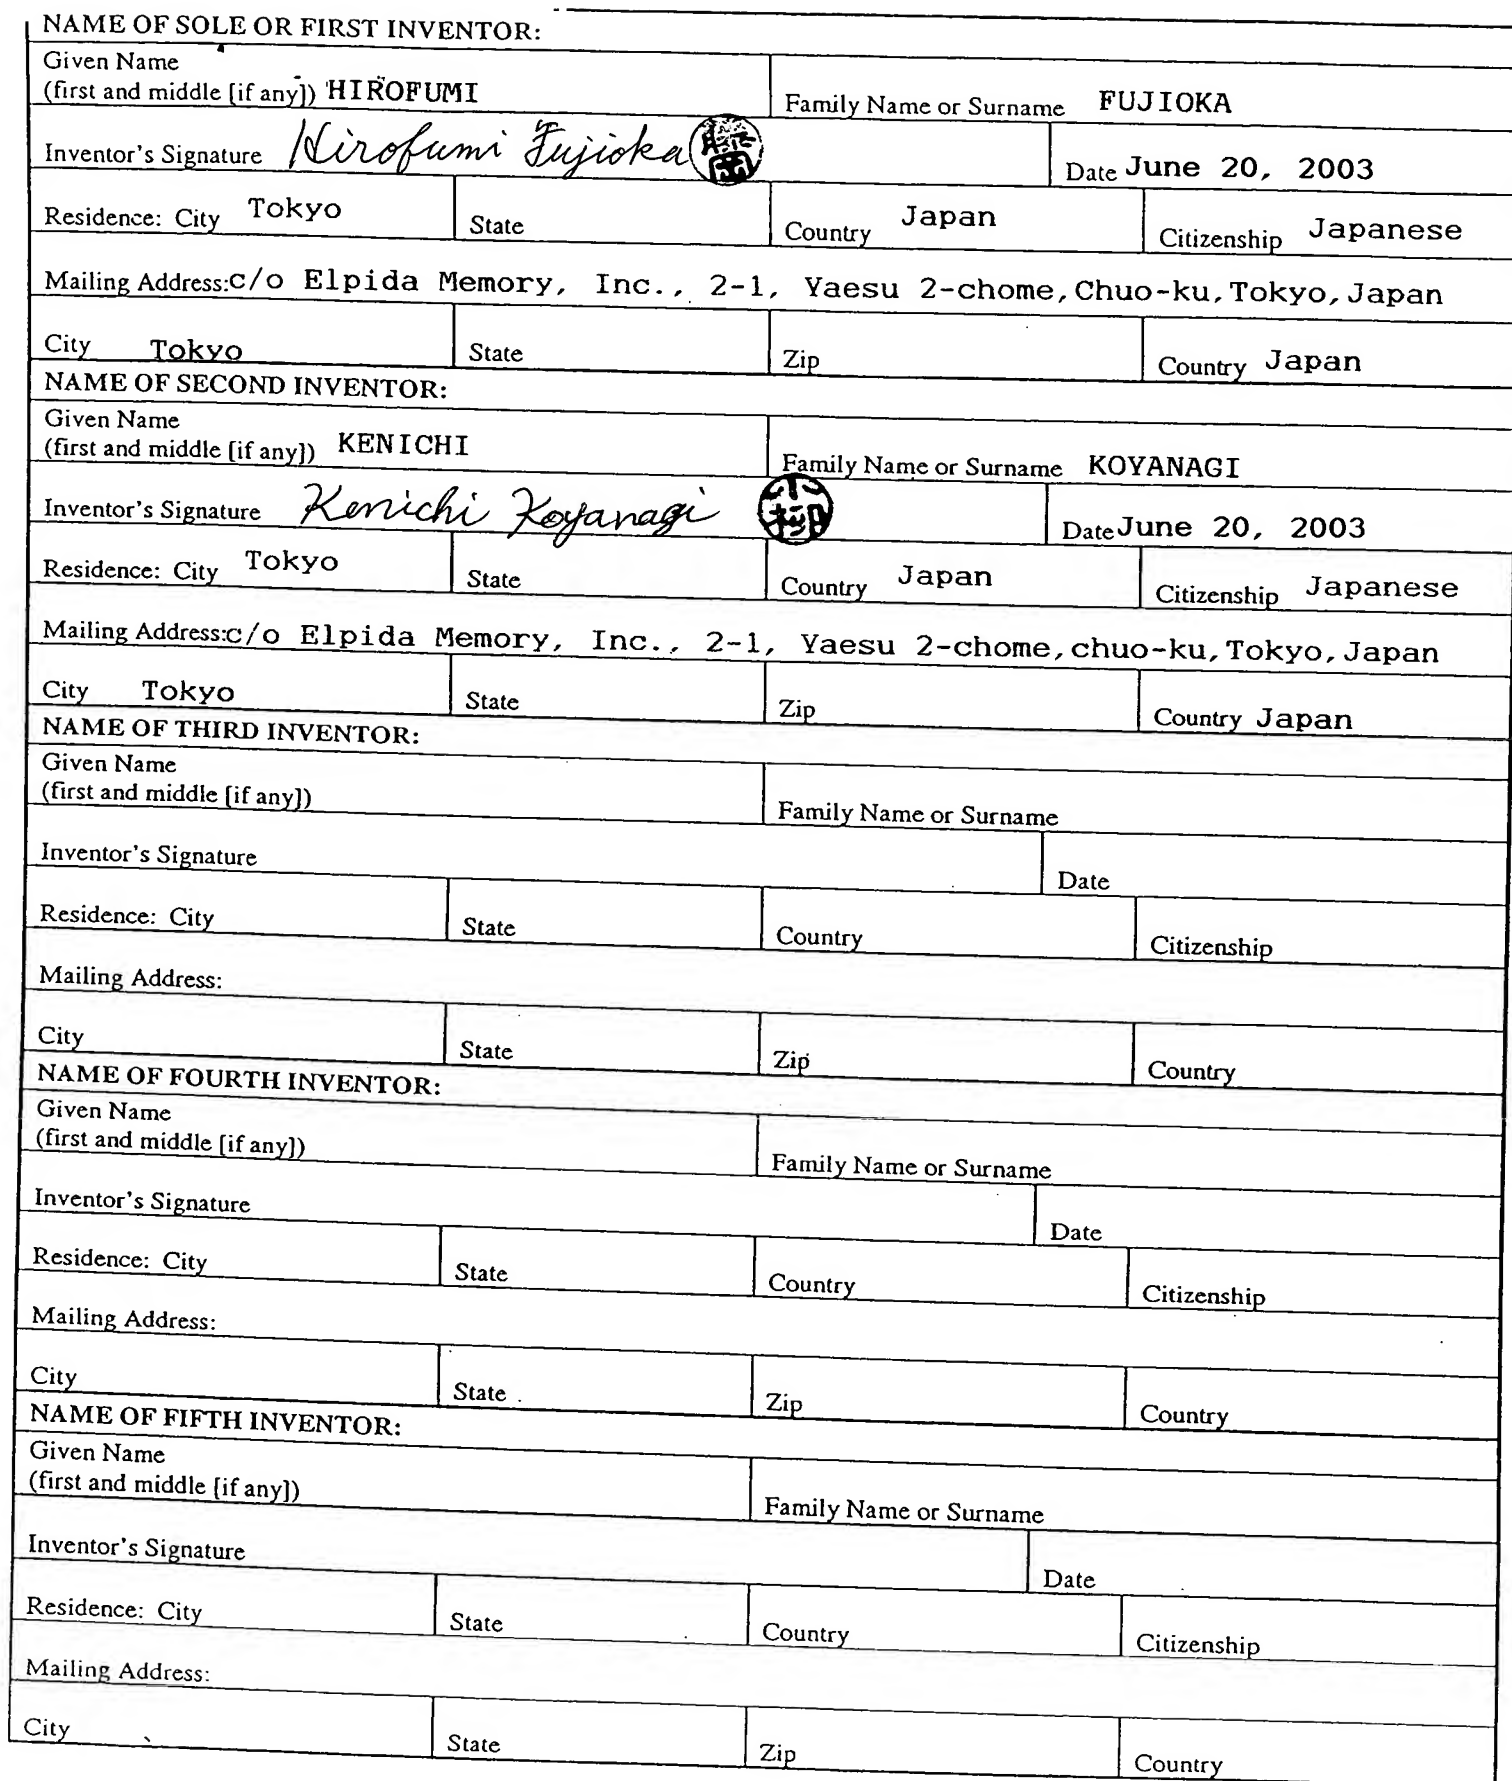 NAME OF SOLE OR FIRST INVENTOR:
Given Name
(first and middle [if any]) HIROFUMI Family Name or Surname FUJIOKA
Inventor's Signature Hirofumi Fujioka 藤岡 Date June 20, 2003
Residence: City Tokyo State Country Japan Citizenship Japanese
Mailing Address:c/o Elpida Memory, Inc., 2-1, Yaesu 2-chome,Chuo-ku,Tokyo,Japan
City Tokyo State Zip Country Japan
NAME OF SECOND INVENTOR:
Given Name
(first and middle [if any]) KENICHI Family Name or Surname KOYANAGI
Inventor's Signature Kenichi Koyanagi 小柳 Date June 20, 2003
Residence: City Tokyo State Country Japan Citizenship Japanese
Mailing Address:c/o Elpida Memory, Inc., 2-1, Yaesu 2-chome,chuo-ku,Tokyo,Japan
City Tokyo State Zip Country Japan
NAME OF THIRD INVENTOR:
Given Name
(first and middle [if any]) Family Name or Surname
Inventor's Signature Date
Residence: City State Country Citizenship
Mailing Address:
City State Zip Country
NAME OF FOURTH INVENTOR:
Given Name
(first and middle [if any]) Family Name or Surname
Inventor's Signature Date
Residence: City State Country Citizenship
Mailing Address:
City State Zip Country
NAME OF FIFTH INVENTOR:
Given Name
(first and middle [if any]) Family Name or Surname
Inventor's Signature Date
Residence: City State Country Citizenship
Mailing Address:
City State Zip Country